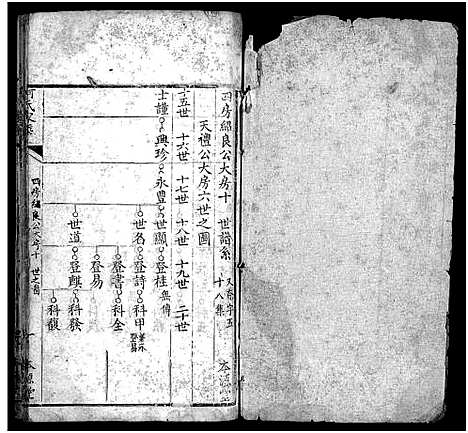 四房紹良公大房十 世譜系
十八集
本源堂
天禮公大房六世之圖
十五世 十六世 十七世 十八世 十九世 二十世
士謹 興珍 永豐 世顯 登桂 無傳
世名 登詩 科甲
登書 科全
登易
世道 登麒 科發
科馥
四房紹良公大房十 世之圖
本源堂